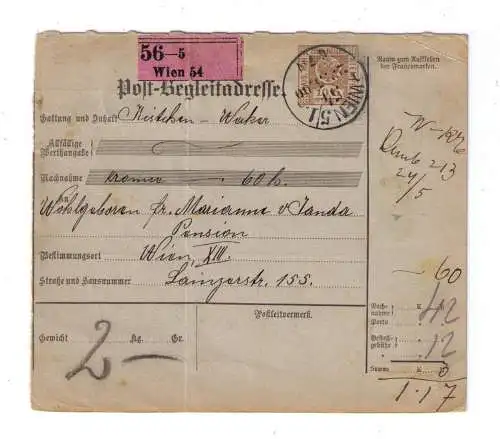 56—5
Wien 54
Raum zum Aufkleben
der Francomarken.
WIEN 5/1
Post-Begleitadresse.
Gattung und Inhalt Kistchen - Waker
Allfällige
Werthangabe
Nachnahme kronen 60 h.
An
Wohlgeboren fr. Marianne v Janda
Pension
Bestimmungsort Wien, XIII.
Straße und Hausnummer Lainzerstr. 155.
213
24/5
60
Postleitvermerk.
Gewicht 2 — Kg. Gr.
Nachnahme K 42
Porto
Bestellgebühr 12
Summe K 0
1.17